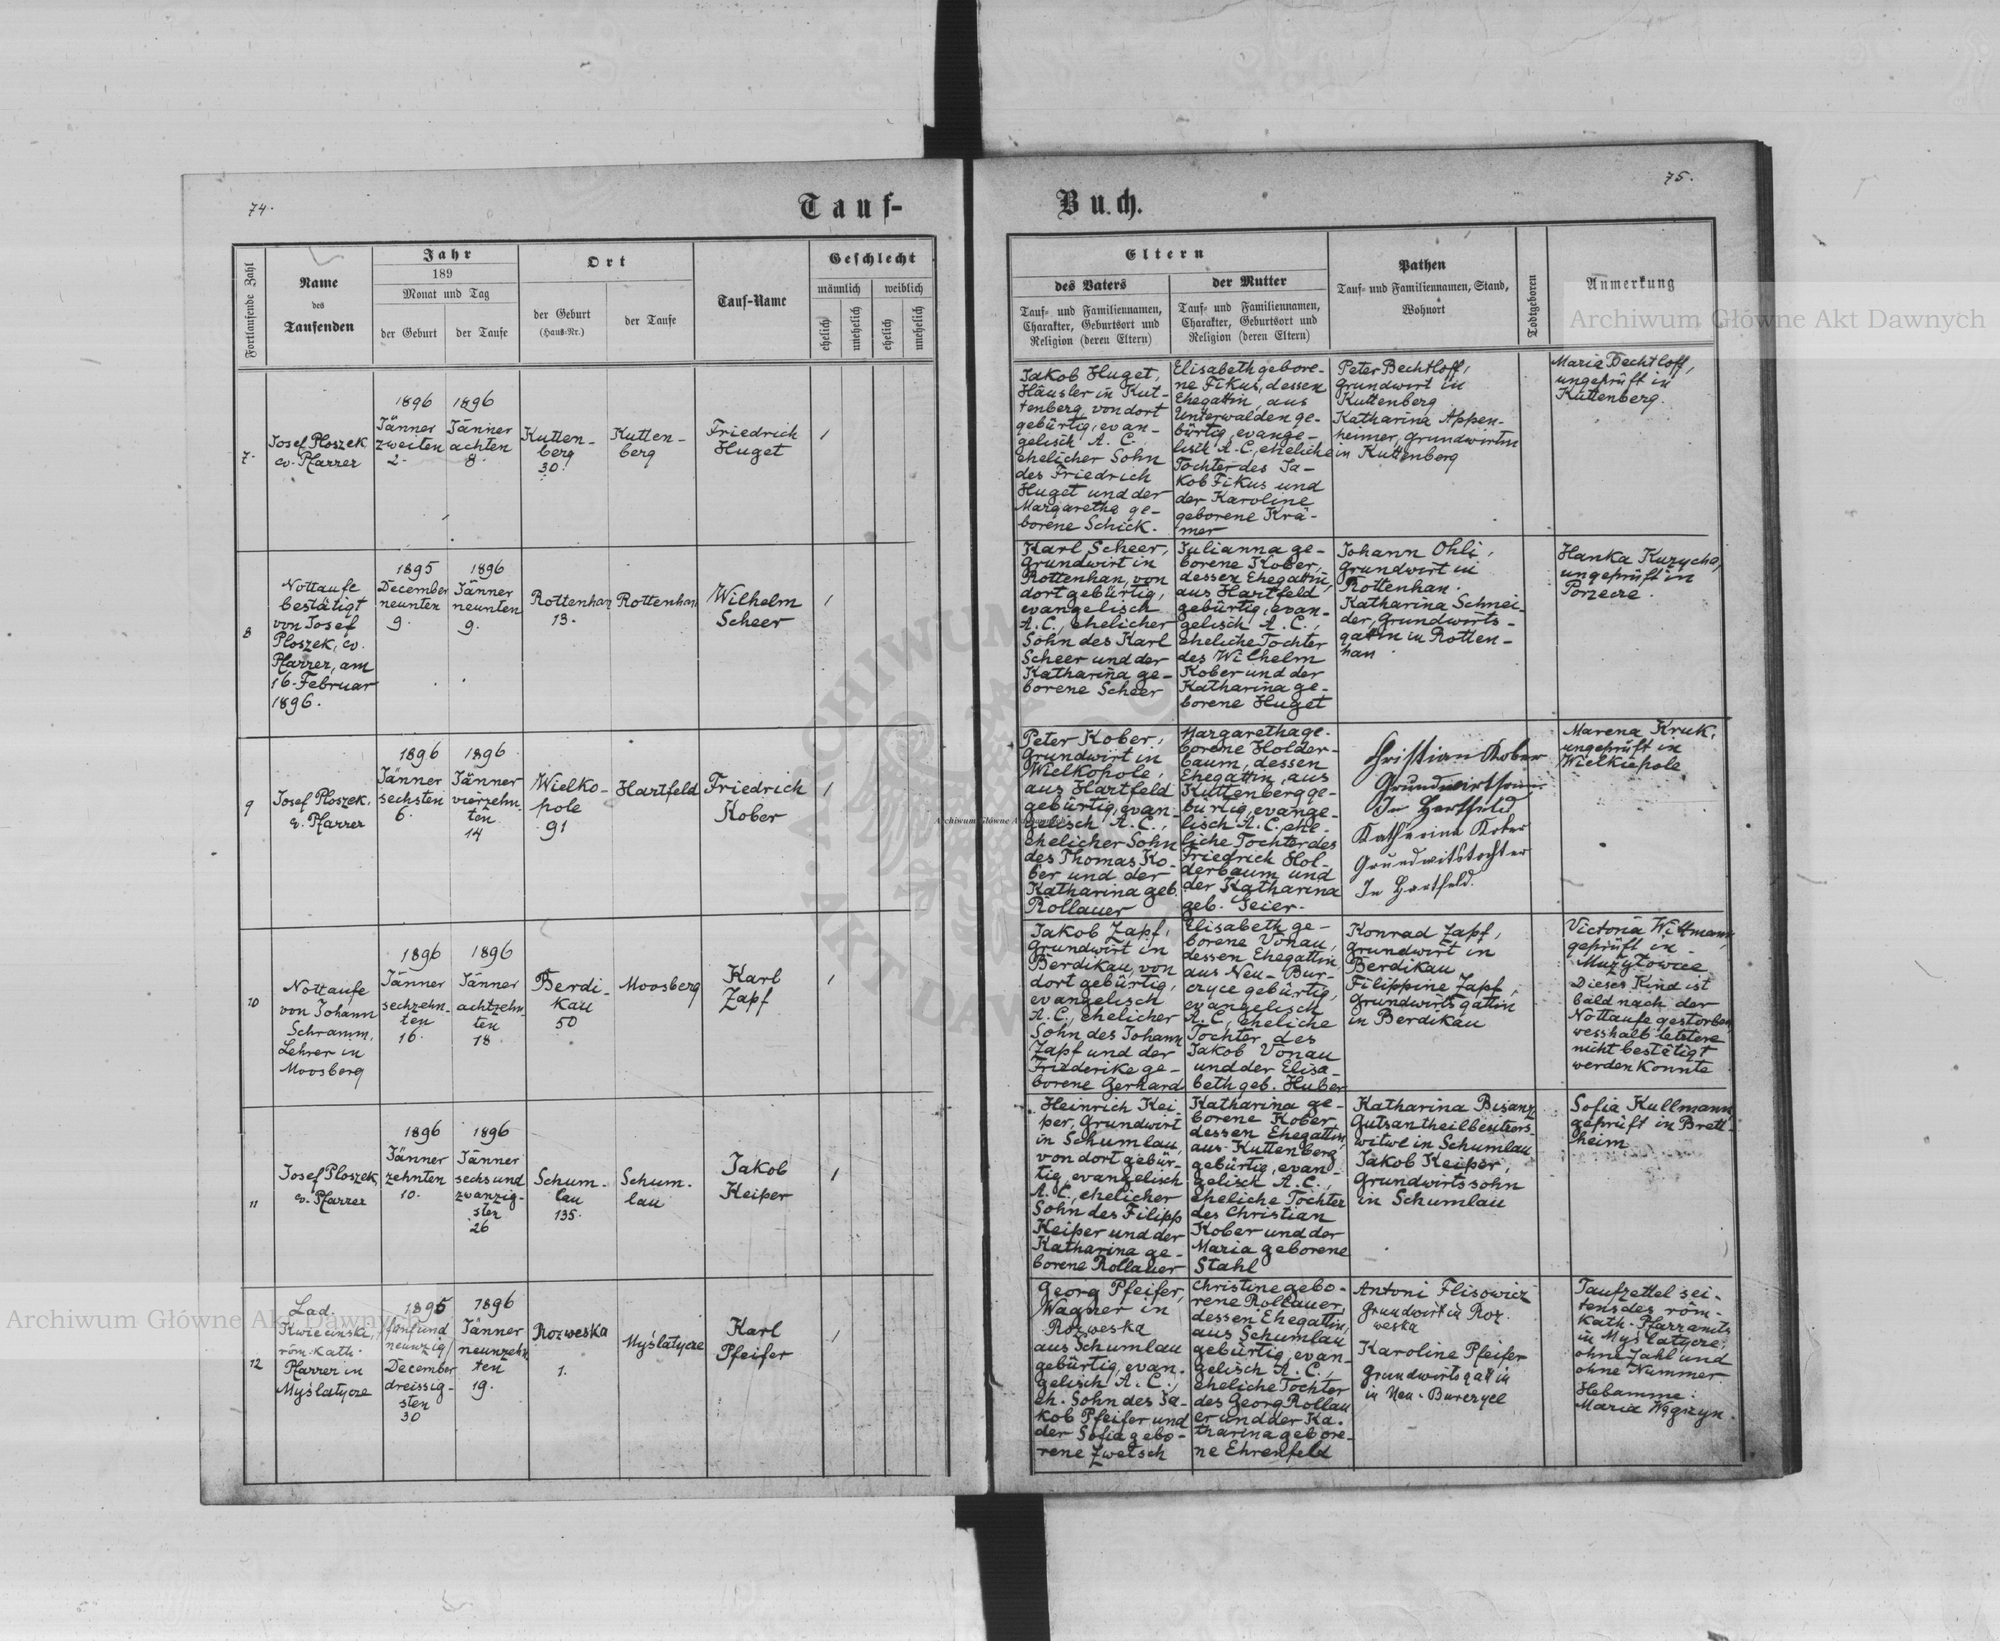 74.
Tauf-
Fortlaufende Zahl
Name
des
Taufenden
Jahr
189
Monat und Tag
der Geburt
der Taufe
Ort
der Geburt
(Haus-Nr.)
der Taufe
Tauf-Name
Geschlecht
männlich
weiblich
ehelich
unehelich
ehelich
unehelich
7.
Josef Ploszek
ev. Pfarrer
1896
Jänner
zweiten
2.
1896
Jänner
achten
8.
Kutten-
berg
30.
Kutten-
berg
Friedrich
Huget
1
8
Nottaufe
bestätigt
von Josef
Ploszek, ev.
Pfarrer, am
16. Februar
1896.
1895
December
neunten
9.
1896
Jänner
neunten
9.
Rottenhan
13.
Rottenhan
Wilhelm
Scheer
1
9
Josef Ploszek,
e. Pfarrer
1896
Jänner
sechsten
6.
1896
Jänner
vierzehn-
ten
14
Wielko-
pole
91
Hartfeld
Friedrich
Kober
1
10
Nottaufe
von Johann
Schramm,
Lehrer in
Moosberg
1896
Jänner
sechzehn-
ten
16.
1896
Jänner
achtzehn-
ten
18
Berdi-
kau
50
Moosberg
Karl
Zapf
1
11
Josef Ploszek,
ev. Pfarrer
1896
Jänner
zehnten
10.
1896
Jänner
sechsund
zwanzig-
sten
26
Schum-
lau
135.
Schum-
lau
Jakob
Keiper
1
12
Lad.
röm. kath.
Pfarrer in
Myślatycze
1895
fünfund
neunzig/
December
dreissig-
sten
30
1896
Jänner
neunzehn
ten
19.
Rozweska
1.
Myślatycze
Karl
Pfeifer
1
75.
Buch.
Eltern
des Vaters
Tauf- und Familiennamen,
Charakter, Geburtsort und
Religion (deren Eltern)
der Mutter
Tauf- und Familiennamen,
Charakter, Geburtsort und
Religion (deren Eltern)
Pathen
Tauf- und Familiennamen, Stand,
Wohnort
Todtgeboren
Anmerkung
Jakob Huget,
Häusler in Kut-
tenberg, von dort
gebürtig, evan-
gelisch A. C.,
ehelicher Sohn
des Friedrich
Huget und der
Margaretha ge-
borene Schick.
Elisabeth gebore-
ne Fikus, dessen
Ehegattin, aus
Unterwalden ge-
bürtig, evange-
lisch A. C., eheliche
Tochter des Ja-
kob Fikus und
der Karoline
geborene Krä-
mer
Peter Bechtloff,
Grundwirt in
Kuttenberg
Katharina Appen-
heimer, Grundwirtin
in Kuttenberg
Maria Bechtloff,
ungeprüft in
Kuttenberg.
Karl Scheer,
Grundwirt in
Rottenhan, von
dort gebürtig,
evangelisch
A. C., ehelicher
Sohn des Karl
Scheer und der
Katharina ge-
borene Scheer
Julianna ge-
borene Kober,
dessen Ehegattin,
aus Hartfeld
gebürtig, evan-
gelisch A. C.,
eheliche Tochter
des Wilhelm
Kober und der
Katharina ge-
borene Huget
Johann Ohli,
Grundwirt in
Rottenhan.
Katharina Schnei-
der, Grundwirts-
gattin in Rotten-
han.
Hanka Kuzycha,
ungeprüft in
Porzecze.
Peter Kober,
Grundwirt in
Wielkopole,
aus Hartfeld
gebürtig, evan-
gelisch A. C.,
ehelicher Sohn
des Thomas Ko-
ber und der
Katharina geb.
Rollauer
Margaretha ge-
borene Holder-
baum, dessen
Ehegattin, aus
Kuttenberg ge-
bürtig, evange-
lisch A. C. ehe-
liche Tochter des
Friedrich Hol-
derbaum und
der Katharina
geb. Geier.
Christian Kober
Grundwirtsohn
In Hartfeld
Katharina Kober
Grundwitstochter
In Hartfeld.
Marena Kruk,
ungeprüft in
Wielkiepole
Jakob Zapf,
Grundwirt in
Berdikau, von
dort gebürtig,
evangelisch
A. C., ehelicher
Sohn des Johann
Zapf und der
Friederike ge-
borene Gerhard
Elisabeth ge-
borene Vonau,
dessen Ehegattin
aus Neu-Bur-
czyce gebürtig,
evangelisch
A. C., eheliche
Tochter des
Jakob Vonau
und der Elisa-
beth geb. Huber
Konrad Zapf,
Grundwirt in
Berdikau
Filippine Zapf,
Grundwirtsgattin
in Berdikau
Victoria Wittmann,
geprüft in
Mużyłowice
Dieses Kind ist
bald nach der
Nottaufe gestorben
wesshalb letztere
nicht bestätigt
werden konnte
Heinrich Kei-
per, Grundwirt
in Schumlau,
von dort gebür-
tig, evangelisch
A. C., ehelicher
Sohn des Filipp
Keiper und der
Katharina ge-
borene Rollauer
Katharina ge-
borene Kober
dessen Ehegattin,
aus Kuttenberg
gebürtig, evan-
gelisch A. C.,
eheliche Tochter
des Christian
Kober und der
Maria geborene
Stahl
Katharina Bisanz
Gutsantheilbesitzers-
witwe in Schumlau
Jakob Keiper,
Grundwirtssohn
in Schumlau
Sofia Kullmann,
geprüft in Brett-
heim
Georg Pfeifer,
Wagner in
Rozweska
aus Schumlau
gebürtig, evan-
gelisch A. C.,
eh. Sohn des Ja-
kob Pfeifer und
der Sofia gebo-
rene Zwetsch
Christine gebo-
rene Rollauer,
dessen Ehegattin,
aus Schumlau
gebürtig, evan-
gelisch A. C.,
eheliche Tochter
des Georg Rollau
er und der Ka-
tharina gebore-
ne Ehrenfeld
Antoni Flisowicz
Grundwirt in Roz-
weska
Karoline Pfeifer
Grundwirtsgattin
in Neu-Burczyce
Taufzettel sei-
tens des röm-
kath. Pfarramts
in Myślatycze:
ohne Zahl und
ohne Nummer
Hebamme:
Maria Węgrzyn.
Archiwum Główne Akt Dawnych
Archiwum Główne Akt Dawnych
Archiwum Główne Akt Dawnych